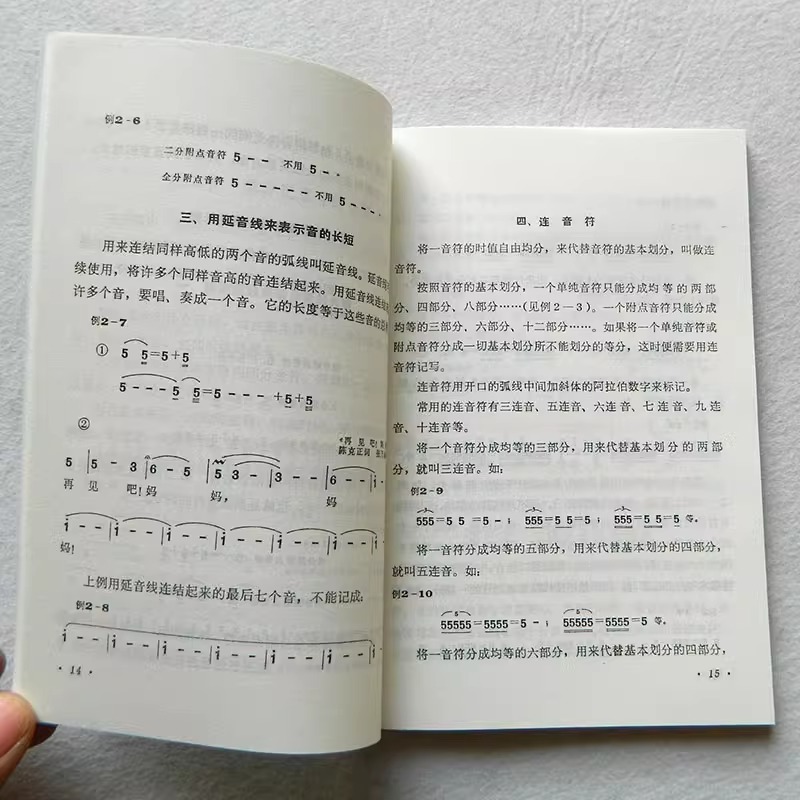 例2-6
二分附点音符 5 - - 不用 5 - 。
全分附点音符 5 - - - - - 不用 5 - - - 。
三、用延音线来表示音的长短
用来连结同样高低的两个音的弧线叫延音线。延音线
续使用，将许多个同样音高的音连结起来。用延音线连结
许多个音，要唱、奏成一个音。它的长度等于这些音的总
例2-7
① 5 5=5+5
5 - - - 5 5=5 - - - +5+5
②
《再见吧！
陈克正词
5 | 5 - 3 | 6 - 5 | 5 3 - | 3 - - | 6 - -
再 见 吧！妈 妈，
i - - | i - - | i - - | i - - | i - - | i - - | i
妈！
上例用延音线连结起来的最后七个音，不能记成：
例2-8
i - - | i - - | i - - | i - - | i - - | i - - | i
· 14 ·
四、连 音 符
将一音符的时值自由均分，来代替音符的基本划分，叫做连
音符。
按照音符的基本划分，一个单纯音符只能分成均等的两部
分、四部分、八部分……（见例2－3）。一个附点音符只能分成
均等的三部分、六部分、十二部分……。如果将一个单纯音符或
附点音符分成一切基本划分所不能划分的等分，这时便需要用连
音符记写。
连音符用开口的弧线中间加斜体的阿拉伯数字来标记。
常用的连音符有三连音、五连音、六连音、七连音、九连
音、十连音等。
将一个音符分成均等的三部分，用来代替基本划分的两部
分，就叫三连音。如：
例2-9
3 3 3
555=5 5=5 -； 555=5 5=5； 555=5 5=5 等。
将一音符分成均等的五部分，用来代替基本划分的四部分，
就叫五连音。如：
例2-10
5 5
55555=5555=5 -； 55555=5555=5 等。
将一音符分成均等的六部分，用来代替基本划分的四部分，
· 15 ·